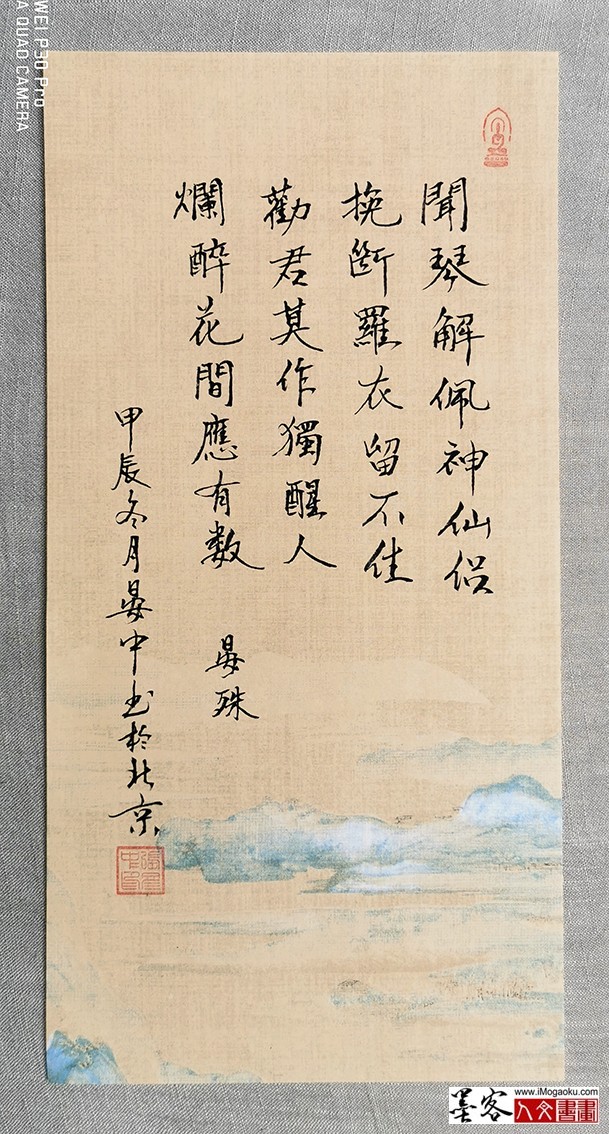 聞琴解佩神仙侶
挽斷羅衣留不住
勸君莫作獨醒人
爛醉花間應有数
晏殊
甲辰冬月晏中书於北京
WEI P30 Pro
A QUAD CAMERA
www.iMogaoku.com
墨客
人文書畫